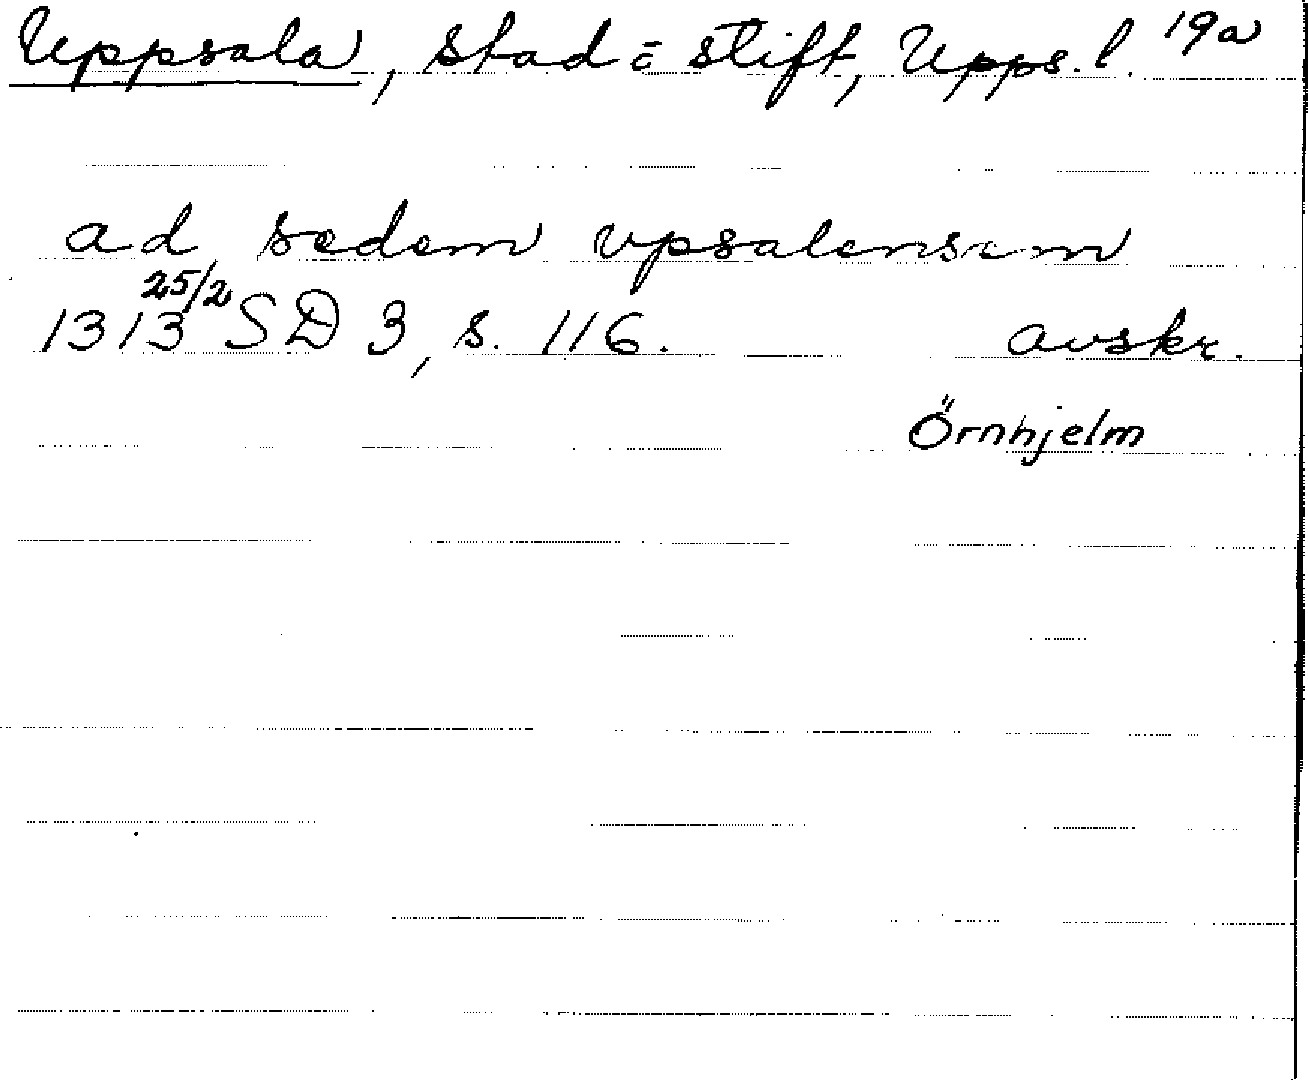 Uppsala, stad o stift, Upps. l. 19a
ad sedem vpsalensem
1313 25/2 SD 3, s. 116. avskr.
Örnhjelm